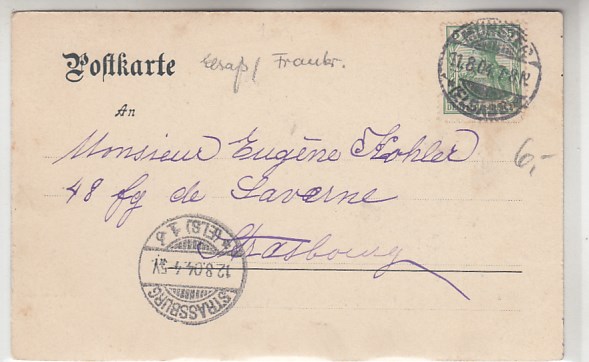 Postkarte
Elsaß / Frankr.
MÜNSTER
11.8.04. 7-8 N
(ELSASS)
An
Monsieur Eugène Kohler
6,-
48 fg de Saverne
Strasbourg
STRASSBURG
12.8.04. 4-5V.
* (ELS) 1 b